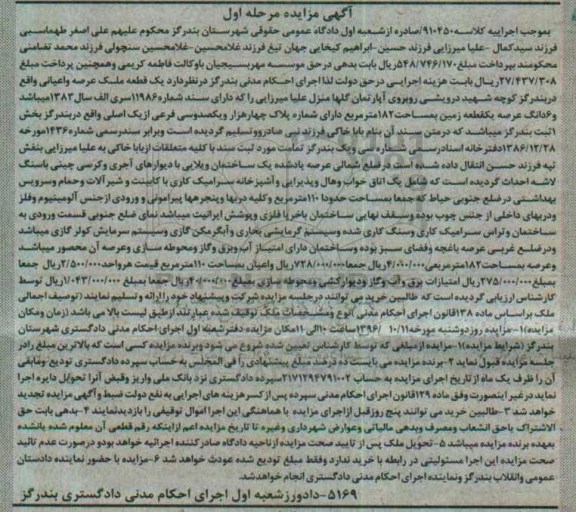 آگهی مزایده مرحله اول
بموجب اجراییه کلاسه ۹۱۰۲۵۰/صادره از شعبه اول دادگاه عمومی حقوقی شهرستان بندرگز محکوم علیهم علی اصغر طهماسبی
فرزند سیدکمال -علیا میرزایی فرزند حسین-ابراهیم کیخایی جهان تیغ فرزند غلامحسین-غلامحسین سنچولی فرزند محمد تضامنی
محکومند بپرداخت مبلغ ۵۴۸/۷۴۶/۱۷۰ریال بابت بدهی در حق موسسه مهر بسیجیان باوکالت فاطمه کریمی وهمچنین پرداخت مبلغ
۲۷/۴۳۷/۳۰۸ریال بابت هزینه اجرایی درحق دولت لذا اجرای احکام مدنی بندرگز درنظردارد یک قطعه ملک عرصه واعیانی واقع
دربندرگز کوچه شهید درویشی روبروی آپارتمان گلها منزل علیا میرزایی را که دارای سند شماره ۱۱۹۸۶سری الف سال۱۳۸۳میباشد
و۶دانگ عرصه یکقطعه زمین بمساحت ۱۸۲مترمربع دارای شماره پلاک چهارهزار ویکصدوسی فرعی ازیک اصلی واقع دربندرگز بخش
۱ثبت بندرگز میباشد که درمتن سند آن بنام بابا خاکی فرزند نبی صادروتسلیم گردیده است وبرابر سندرسمی شماره۱۴۳۶مورخه
۱۳۸۶/۱۲/۲۸دفترخانه اسنادرسمی شماره سی ویک بندرگز تمامت مورد ثبت سند با کلیه متعلقات ازبابا خاکی به علیا میرزایی بنفش
تپه فرزند حسن انتقال داده شده است درضلع شمالی عرصه یادشده یک ساختمان ویلایی با دیوارهای آجری وکرسی چینی باسنگ
لاشه احداث گردیده است که شامل یک اتاق خواب وهال وپذیرایی وآشپزخانه سرامیک کاری با کابینت و شیرآلات وحمام وسرویس
بهداشتی در ضلع جنوبی حیاط که جمعا بمساحت حدودا ۱۱۰مترمربع و کلیه دربها وپنجرهها پیرامونی و ورودی ازجنس آلومینیوم وفلز
ودربهای داخلی از جنس چوب بوده وسقف نهایی ساختمان باخرپا فلزی وپوشش ایرانیت میباشد نمای ضلع جنوبی قسمت ورودی به
ساختمان وتراس سرامیک کاری وسنگ کاری شده وسیستم گرمایشی بخاری وآبگرمکن گازی وسیستم سرمایش کولر گازی میباشد
ودرضلع غربی عرصه باغچه وفضای سبز بوده وساختمان دارای امتیاز آب وبرق وگاز ومحوطه سازی وعرصه آن محصور میباشد
وعرصه بمساحت۱۸۲مترمربعی۴/۰۰۰/۰۰۰ریال جمعا۷۲۸/۰۰۰/۰۰۰ریال واعیان بمساحت ۱۱۰مترمربع قیمت هرواحد۲/۵۰۰/۰۰۰ریال جمعا
بمبلغ ۲۷۵/۰۰۰/۰۰۰ریال امتیازات برق وآب وگاز ودیوارکشی ومحوطه سازی بمبلغ ۴۰/۰۰۰/۰۰۰ریال جمعا بمبلغ ۱/۰۴۳/۰۰۰/۰۰۰ریال توسط
کارشناس ارزیابی گردیده است که طالبین خرید می توانند درجلسه مزایده شرکت وپیشنهاد خود را ارائه و تسلیم نمایند (توصیف اجمالی
ملک براساس ماده ۱۳۸قانون اجرای احکام مدنی )نوع ومشخصات ملک توقیف شده عبارتند ازطبق لیست بالا می باشد (زمان ومکان
مزایده)۱-مزایده روزدوشنبه مورخه۱۰/۱۱/ ۱۳۹۶/ ساعت ۱۰الی ۱۱مکان مزایده دفترشعبه اول اجرای احکام مدنی دادگستری شهرستان
بندرگز (شرایط مزایده)۱-مزایده ازمبلغی که توسط کارشناس تعیین شده شروع می شود وبرنده مزایده کسی است که بالاترین مبلغ رادر
جلسه مزایده قبول نماید ۲-برنده مزایده می بایست ده درصد مبلغ پیشنهادی را فی المجلس به حساب سپرده دادگستری تودیع ومابقی
آن را ظرف یک ماه ازتاریخ اجرای مزایده به حساب ۲۱۷۱۲۹۴۷۹۱۰۰۲سپرده دادگستری نزد بانک ملی واریز وقبض آنرا تحویل دایره اجرا
نماید درغیر اینصورت وفق ماده ۱۲۹قانون اجرای احکام مدنی سپرده پس ازکسر هزینه های اجرایی به نفع دولت ضبط وآگهی مزایده تجدید
خواهد شد ۳-طالبین خرید می توانند پنج روزقبل ازاجرای مزایده با هماهنگی این اجرا اموال توقیفی را بازدیدنمایند ۴-بدهی بابت حق
الاشتراک یاحق انشعاب ومصرف وبدهی مالیاتی وعوارض شهرداری وغیره تا تاریخ مزایده اعم ازاینکه رقم قطعی آن معلوم شده یانشده
بعهده برنده مزایده میباشد ۵-تحویل ملک پس از تایید صحت مزایده ازناحیه دادگاه صادر کننده اجرائیه خواهد بودو درصورت عدم تائید
صحت مزایده این اجرا مسئولیتی در رابطه با خرید ندارد وفقط مبلغ تودیع شده عودت خواهد شد ۶-مزایده با حضور نماینده دادستان
عمومی وانقلاب بندرگز ونماینده اجرای احکام مدنی دادگستری انجام خواهدشد.
۵۱۶۹-دادورز شعبه اول اجرای احکام مدنی دادگستری بندرگز